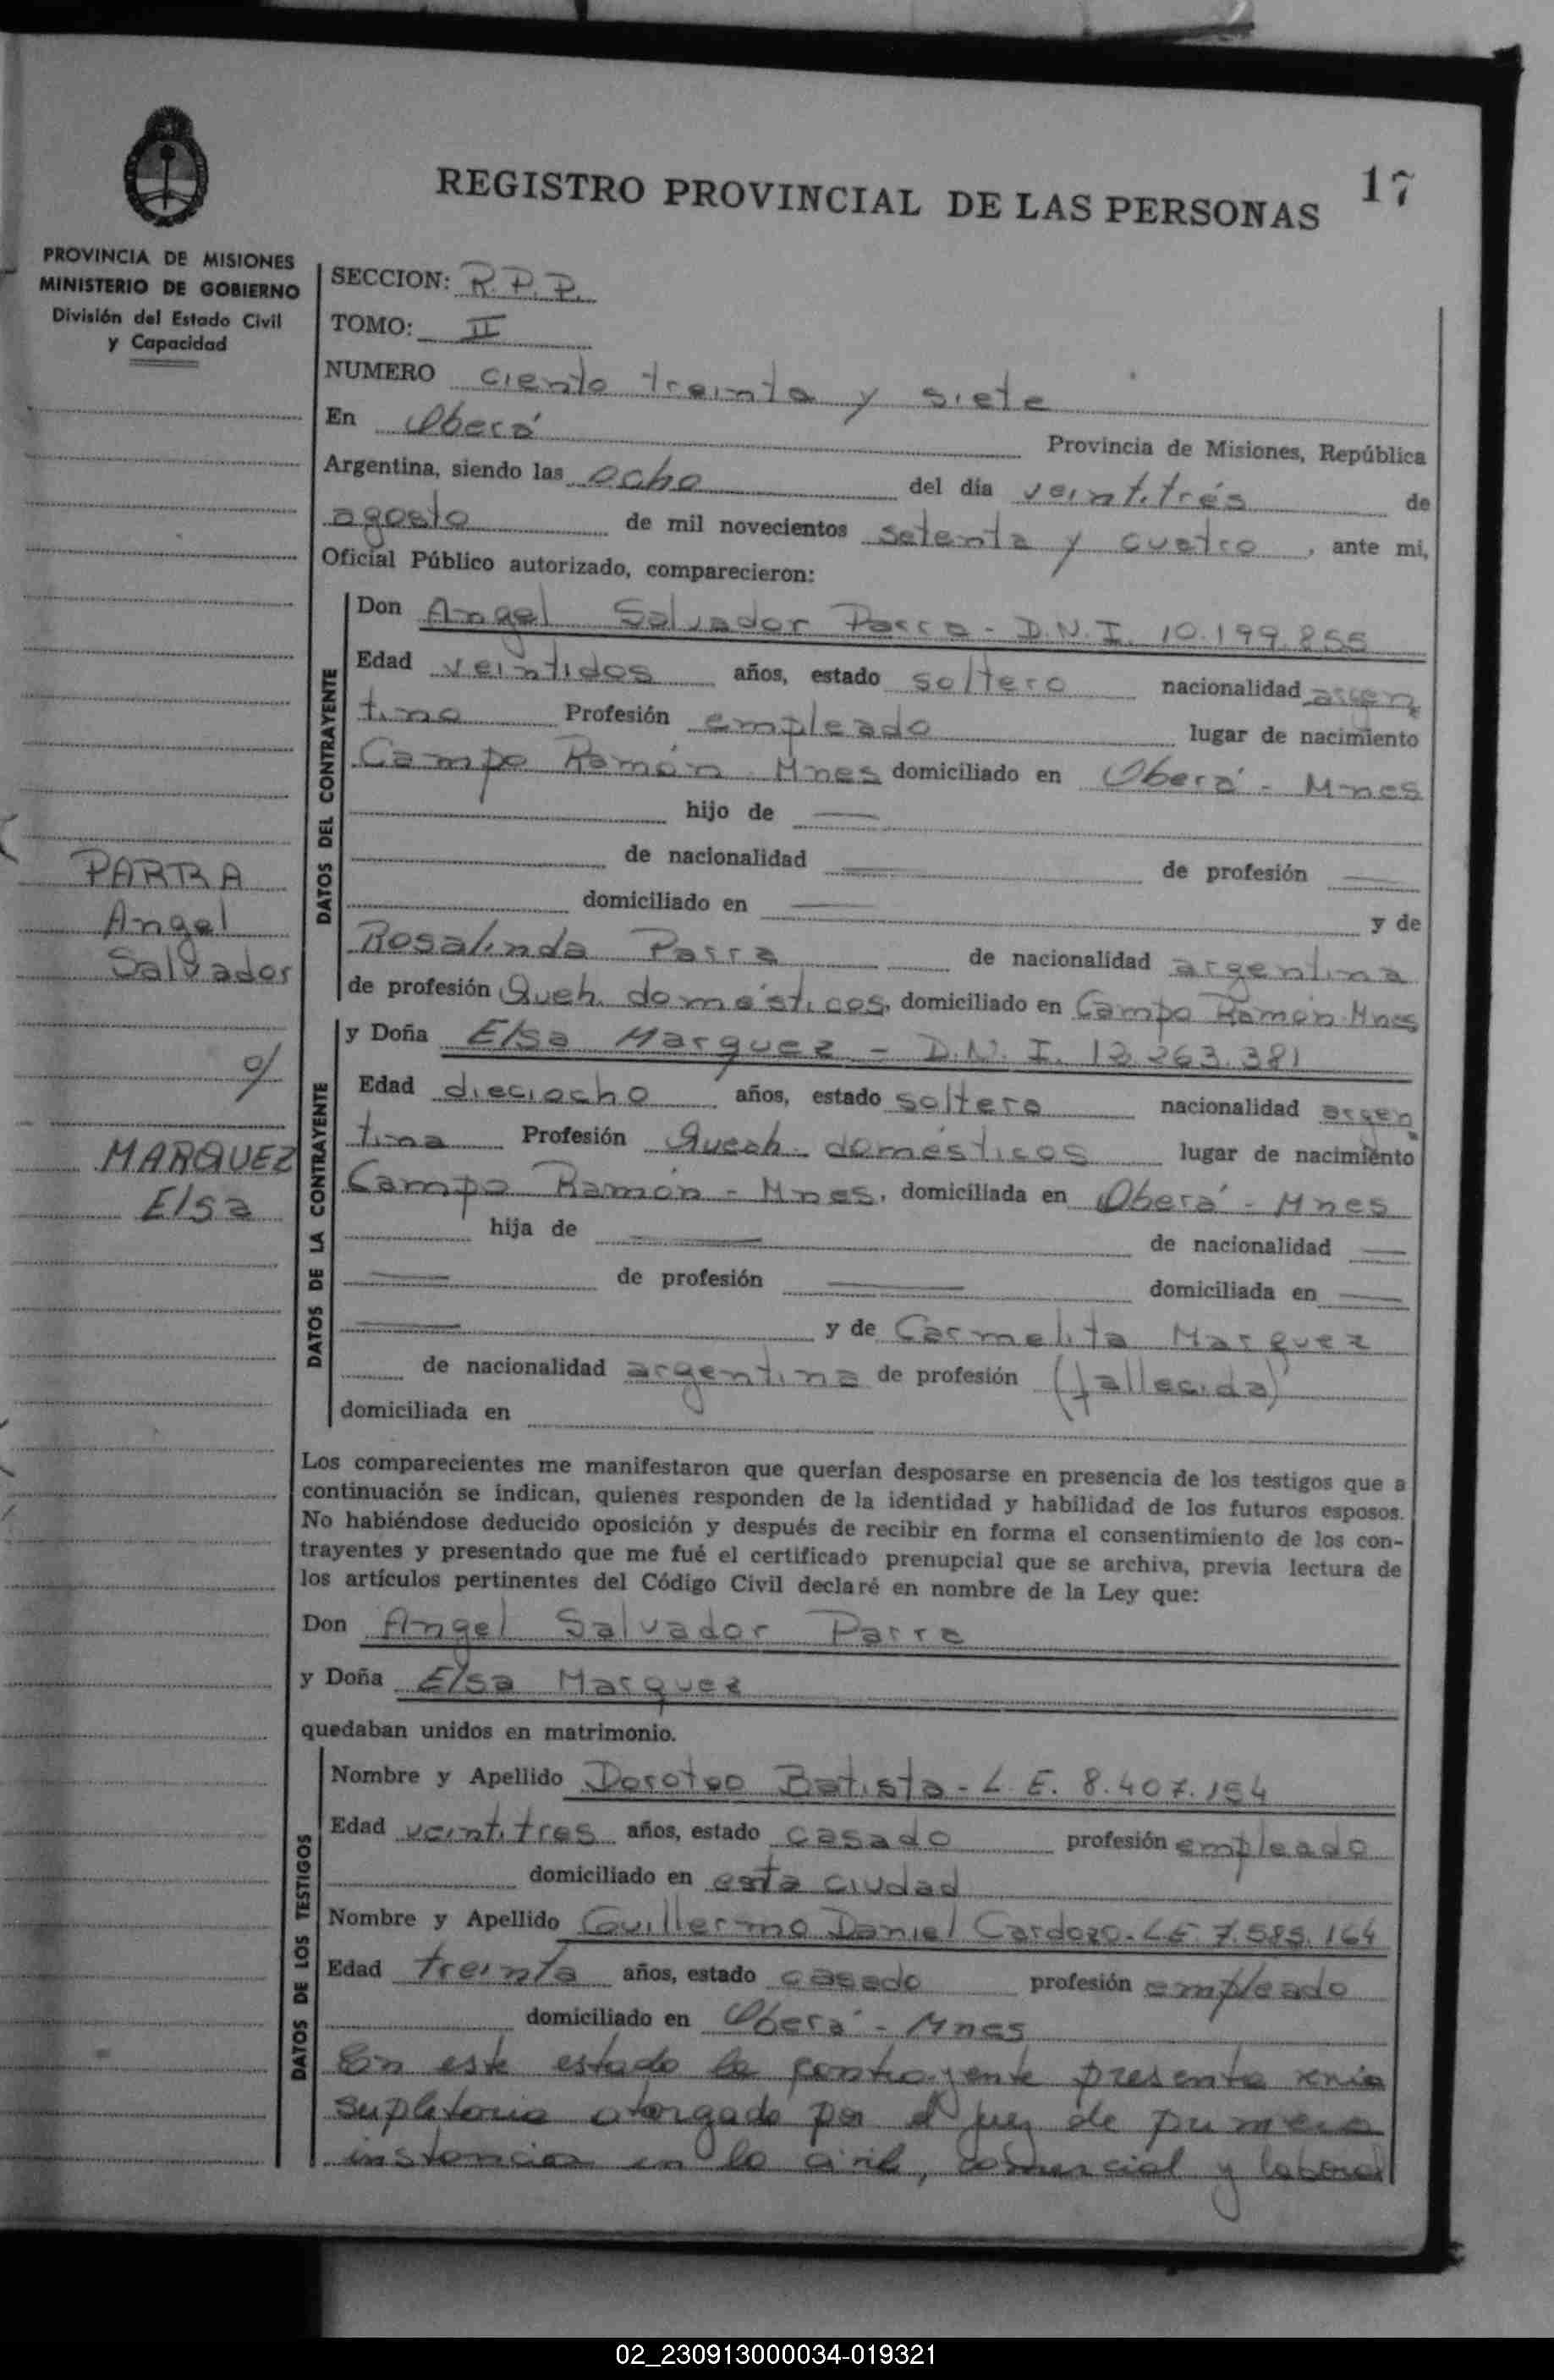 17
REGISTRO PROVINCIAL DE LAS PERSONAS
PROVINCIA DE MISIONES
MINISTERIO DE GOBIERNO
División del Estado Civil
y Capacidad
SECCION: R.P.P.
TOMO: II
NUMERO ciento treinta y siete
En Oberá Provincia de Misiones, República
Argentina, siendo las ocho del día veintitrés de
agosto de mil novecientos setenta y cuatro, ante mi,
Oficial Público autorizado, comparecieron:
DATOS DEL CONTRAYENTE
Don Angel Salvador Parra - D.N.I. 10.199.855
Edad veintidos años, estado soltero nacionalidad argen
tino Profesión empleado lugar de nacimiento
Campo Ramón - Mnes domiciliado en Oberá - Mnes
hijo de
de nacionalidad de profesión
domiciliado en y de
Rosalinda Parra de nacionalidad argentina
de profesión Queh. domésticos, domiciliado en Campo Ramón Mnes
PARRA
Angel
Salvador
c/
MARQUEZ
Elsa
DATOS DE LA CONTRAYENTE
y Doña Elsa Marquez - D.N.I. 12.263.381
Edad dieciocho años, estado soltera nacionalidad argen
tina Profesión Quech. domésticos lugar de nacimiento
Campo Ramón - Mnes, domiciliada en Oberá - Mnes
hija de de nacionalidad
de profesión domiciliada en
y de Carmelita Marquez
de nacionalidad argentina de profesión (fallecida)
domiciliada en
Los comparecientes me manifestaron que querían desposarse en presencia de los testigos que a
continuación se indican, quienes responden de la identidad y habilidad de los futuros esposos.
No habiéndose deducido oposición y después de recibir en forma el consentimiento de los con-
trayentes y presentado que me fué el certificado prenupcial que se archiva, previa lectura de
los artículos pertinentes del Código Civil declaré en nombre de la Ley que:
Don Angel Salvador Parra
y Doña Elsa Marquez
quedaban unidos en matrimonio.
DATOS DE LOS TESTIGOS
Nombre y Apellido Doroteo Batista - L.E. 8.407.154
Edad veintitres años, estado casado profesión empleado
domiciliado en esta ciudad
Nombre y Apellido Guillermo Daniel Cardozo - LE. 7.585.164
Edad treinta años, estado casado profesión empleado
domiciliado en Oberá - Mnes
En este estado la contrayente presenta venia
supletoria otorgado por el juez de primera
instancia en lo civil, comercial y laboral
02_230913000034-019321